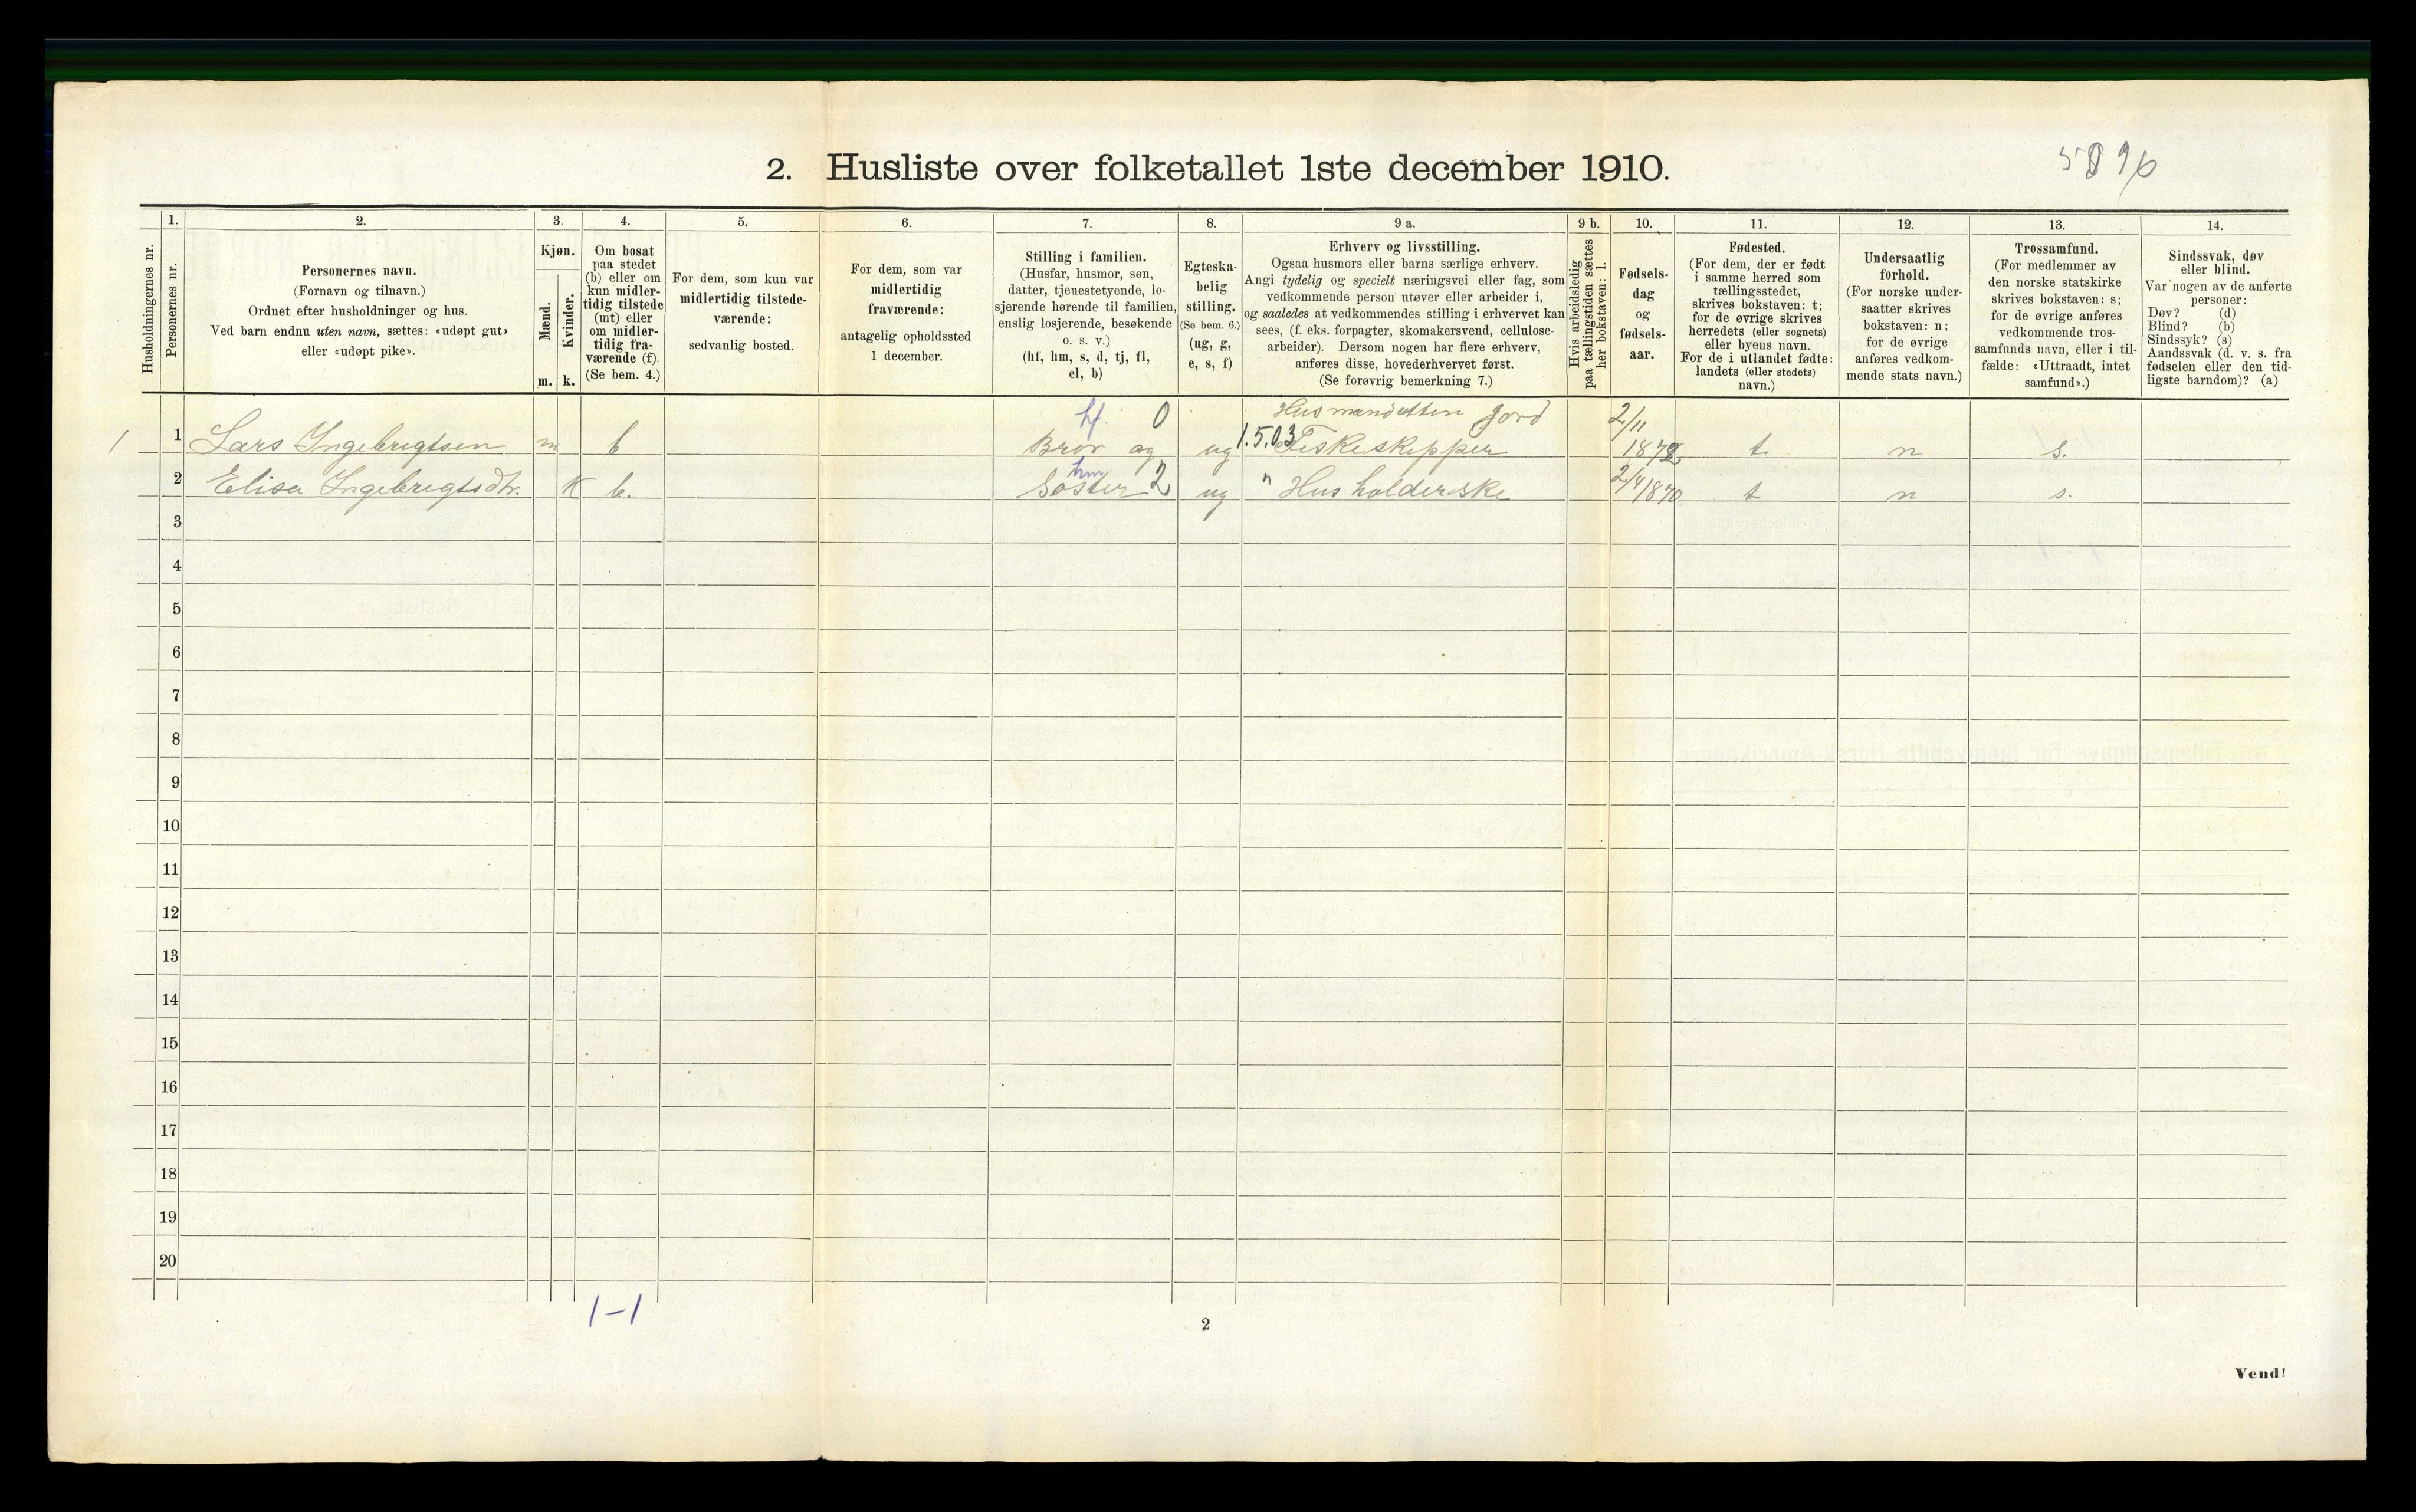 2. Husliste over folketallet 1ste december 1910.
Husholdningernes nr.
1.
Personernes nr.
2.
Personernes navn.
(Fornavn og tilnavn.)
Ordnet efter husholdninger og hus.
Ved barn endnu uten navn, sættes: «udøpt gut»
eller «udøpt pike».
3.
Kjøn.
Mænd.
Kvinder.
m. k.
4.
Om bosat
paa stedet
(b) eller om
kun midler-
tidig tilstede
(mt) eller
om midler-
tidig fra-
værende (f).
(Se bem. 4.)
5.
For dem, som kun var
midlertidig tilstede-
værende:
sedvanlig bosted.
6.
For dem, som var
midlertidig
fraværende:
antagelig opholdssted
1 december.
7.
Stilling i familien.
(Husfar, husmor, søn,
datter, tjenestetyende, lo-
sjerende hørende til familien,
enslig losjerende, besøkende
o. s. v.)
(hf, hm, s, d, tj, fl,
el, b)
8.
Egteska-
belig
stilling.
(Se bem. 6.)
(ug, g,
e, s, f)
9 a.
Erhverv og livsstilling.
Ogsaa husmors eller barns særlige erhverv.
Angi tydelig og specielt næringsvei eller fag, som
vedkommende person utøver eller arbeider i,
og saaledes at vedkommendes stilling i erhvervet kan
sees, (f. eks. forpagter, skomakersvend, cellulose-
arbeider). Dersom nogen har flere erhverv,
anføres disse, hovederhvervet først.
(Se forøvrig bemerkning 7.)
9 b.
Hvis arbeidsledig
paa tællingstiden sættes
her bokstaven: l.
10.
Fødsels-
dag
og
fødsels-
aar.
11.
Fødested.
(For dem, der er født
i samme herred som
tællingsstedet,
skrives bokstaven: t;
for de øvrige skrives
herredets (eller sognets)
eller byens navn.
For de i utlandet fødte:
landets (eller stedets)
navn.)
12.
Undersaatlig
forhold.
(For norske under-
saatter skrives
bokstaven: n;
for de øvrige
anføres vedkom-
mende stats navn.)
13.
Trossamfund.
(For medlemmer av
den norske statskirke
skrives bokstaven: s;
for de øvrige anføres
vedkommende tros-
samfunds navn, eller i til-
fælde: «Uttraadt, intet
samfund».)
14.
Sindssvak, døv
eller blind.
Var nogen av de anførte
personer:
Døv? (d)
Blind? (b)
Sindssyk? (s)
Aandssvak (d. v. s. fra
fødselen eller den tid-
ligste barndom)? (a)
hf. 0 Husmand utten Jord 2/11
1 1 Lars Ingebrigtsen m b Bror og ug 1.5.03 Fiskeskipper 1872 t n s.
hm
2 Elisa Ingebrigtsdtr. K b. Søster 2 ug " Husholderske 2/4 1870 t n s.
3
4
5
6
7
8
9
10
11
12
13
14
15
16
17
18
19
20
1-1
2
Vend!